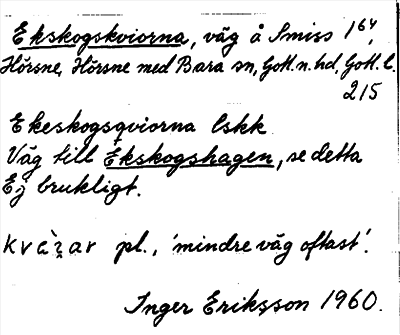 Ekskogskviorna, väg å Smiss 1⁶⁴,
Hörsne, Hörsne med Bara sn, Gotl. n. hd, Gotl. l.
215
Ekeskogsqviorna lskk
Väg till Ekskogshagen, se detta
Ej brukligt.
pl., 'mindre väg oftast'.
Inger Eriksson 1960.